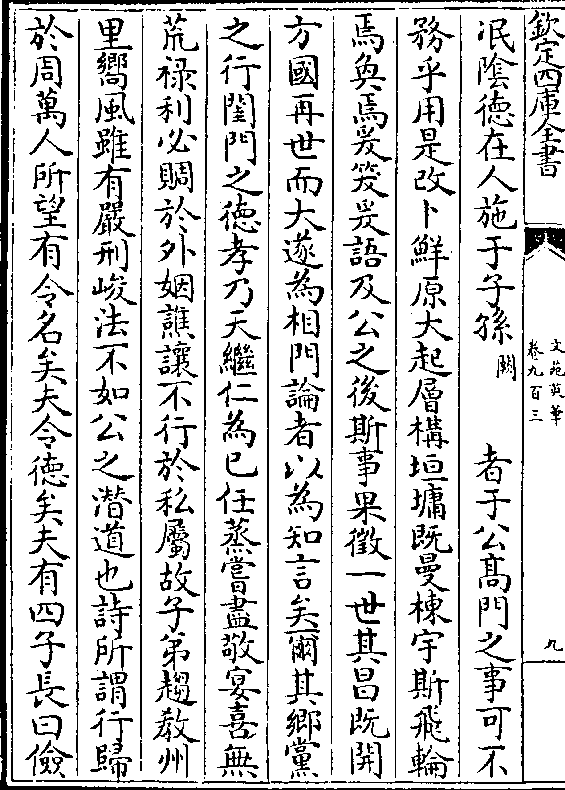 欽定四庫全書
文苑英華
卷九百三
九
泯陰德在人施于子孫闕者于公髙門之事可不
務乎用是改卜鮮原大起層構垣墉既曼棟宇斯飛輪
焉奐焉爰笑爰語及公之後斯事果徵一世其昌既開
方國再世而大遂為相門論者以為知言矣爾其鄉黨
之行閨門之德孝乃天繼仁為已任蒸嘗盡敬宴喜無
荒禄利必賙於外姻譙讓不行於私屬故子弟趨教州
里嚮風雖有嚴刑峻法不如公之潜道也詩所謂行歸
於周萬人所望有令名矣夫令德矣夫有四子長曰儉